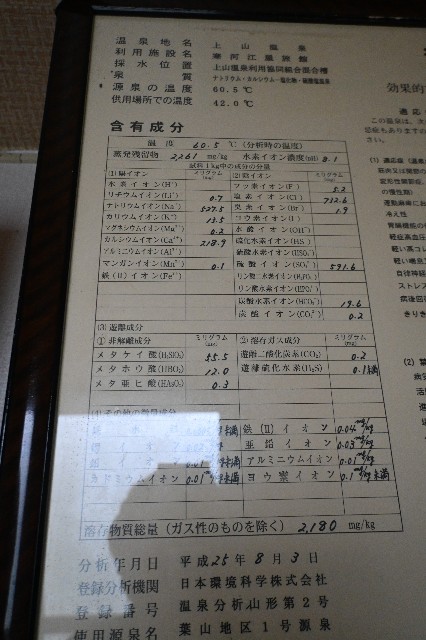 温泉地名 上山温泉
利用施設名 寒河江屋旅館
採水位置 上山温泉利用協同組合混合槽
泉質 ナトリウム・カルシウム-塩化物・硫酸塩温泉
源泉の温度 60.5℃
供用場所での温度 42.0℃
含有成分
温度 60.5℃(分析時の温度)
蒸発残留物 2261 mg/kg 水素イオン濃度(pH) 8.1
試料1kg中の成分の分量
(1)陽イオン ミリグラム(mg) (2)陰イオン ミリグラム(mg)
水素イオン(H⁺) フッ素イオン(F⁻) 5.2
リチウムイオン(Li⁺) 0.7 塩素イオン(Cl⁻) 712.6
ナトリウムイオン(Na⁺) 527.5 臭素イオン(Br⁻) 1.9
カリウムイオン(K⁺) 13.5 ヨウ素イオン(I⁻)
マグネシウムイオン(Mg²⁺) 0.2 水酸イオン(OH⁻)
カルシウムイオン(Ca²⁺) 218.9 硫化水素イオン(HS⁻)
アルミニウムイオン(Al³⁺) 硫酸水素イオン(HSO₄⁻)
マンガンイオン(Mn²⁺) 0.1 硫酸イオン(SO₄²⁻) 591.6
鉄(Ⅱ)イオン(Fe²⁺) リン酸二水素イオン(H₂PO₄⁻)
リン酸水素イオン(HPO₄²⁻)
炭酸水素イオン(HCO₃⁻) 19.6
炭酸イオン(CO₃²⁻) 0.2
(3)遊離成分
①非解離成分 ミリグラム(mg) ②溶存ガス成分 ミリグラム(mg)
メタケイ酸(H₂SiO₃) 55.5 遊離二酸化炭素(CO₂) 0.2
メタホウ酸(HBO₂) 12.0 遊離硫化水素(H₂S) 0.1未満
メタ亜ヒ酸(HAsO₂) 0.3
(4)その他の微量成分
未満 鉄(Ⅱ)イオン 0.04 mg/kg
イオン 亜鉛イオン 0.03 mg/kg
イオン 0.01 未満 アルミニウムイオン 0.01 mg/kg
カドミウムイオン 0.01 未満 ヨウ素イオン 0.1 mg/kg未満
溶存物質総量(ガス性のものを除く) 2,180 mg/kg
分析年月日 平成25年8月3日
登録分析機関 日本環境科学株式会社
登録番号 温泉分析山形第2号
使用源泉名 葉山地区1号源泉
効果的
適応
この温泉は、
(1) 適応症
冷え性
ストレス
(2)